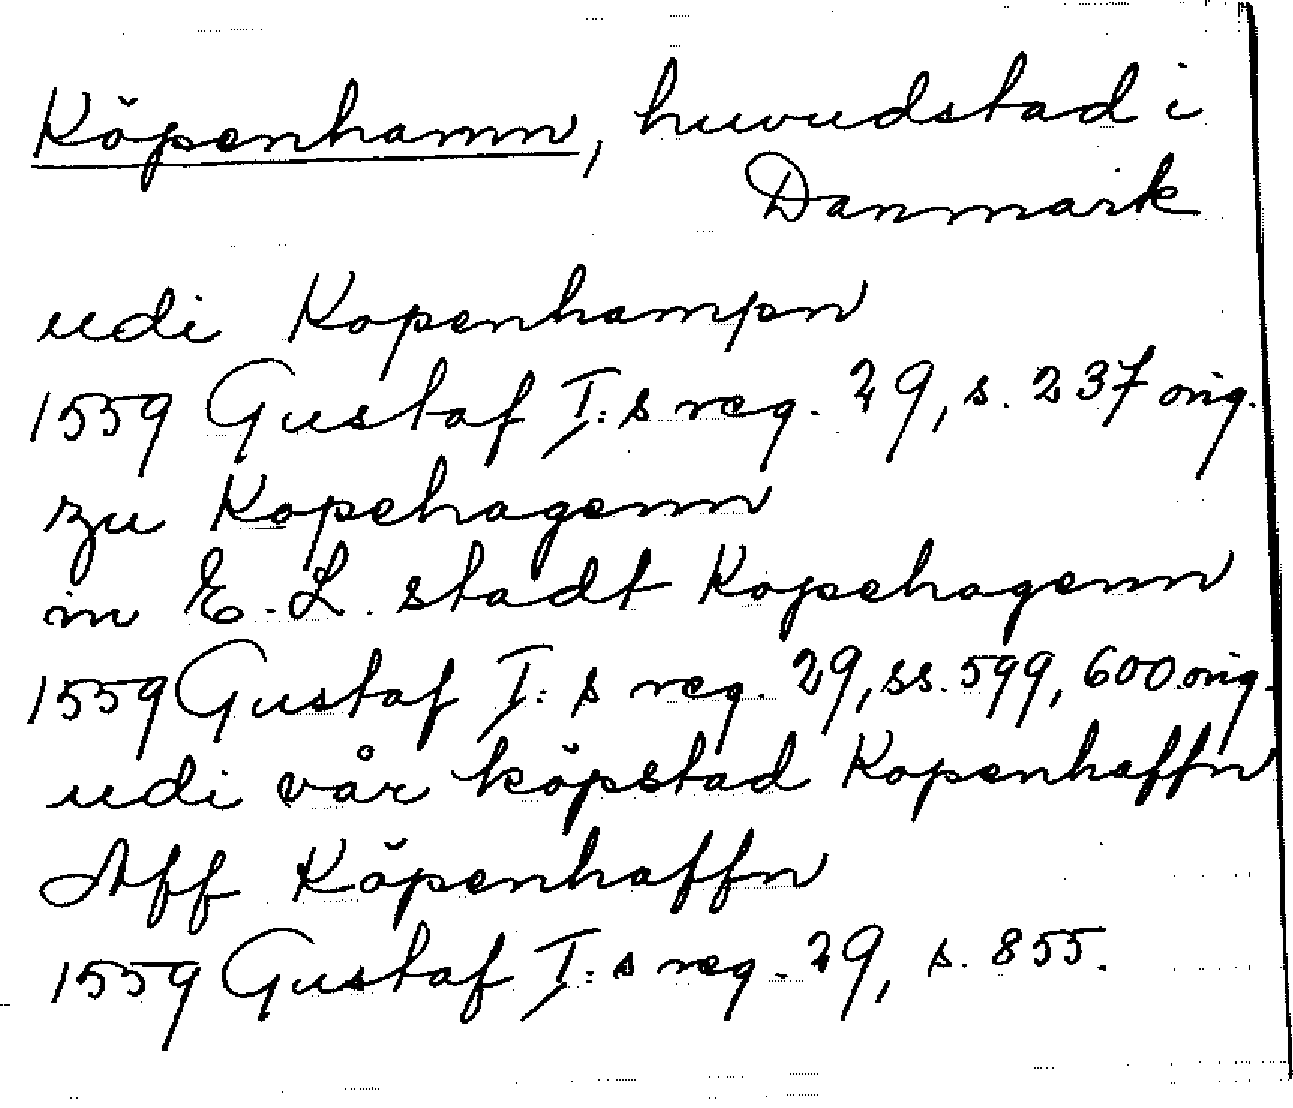 Köpenhamn, huvudstad i
Danmark
udi Kopenhampn
1559 Gustaf I:s reg. 29, s. 237 orig.
zu Kopehagenn
in E. L. stadt Kopehagenn
1559 Gustaf I:s reg. 29, ss. 599, 600 orig.
udi vår köpstad Kopenhaffn
Aff Köpenhaffn
1559 Gustaf I:s reg. 29, s. 855.